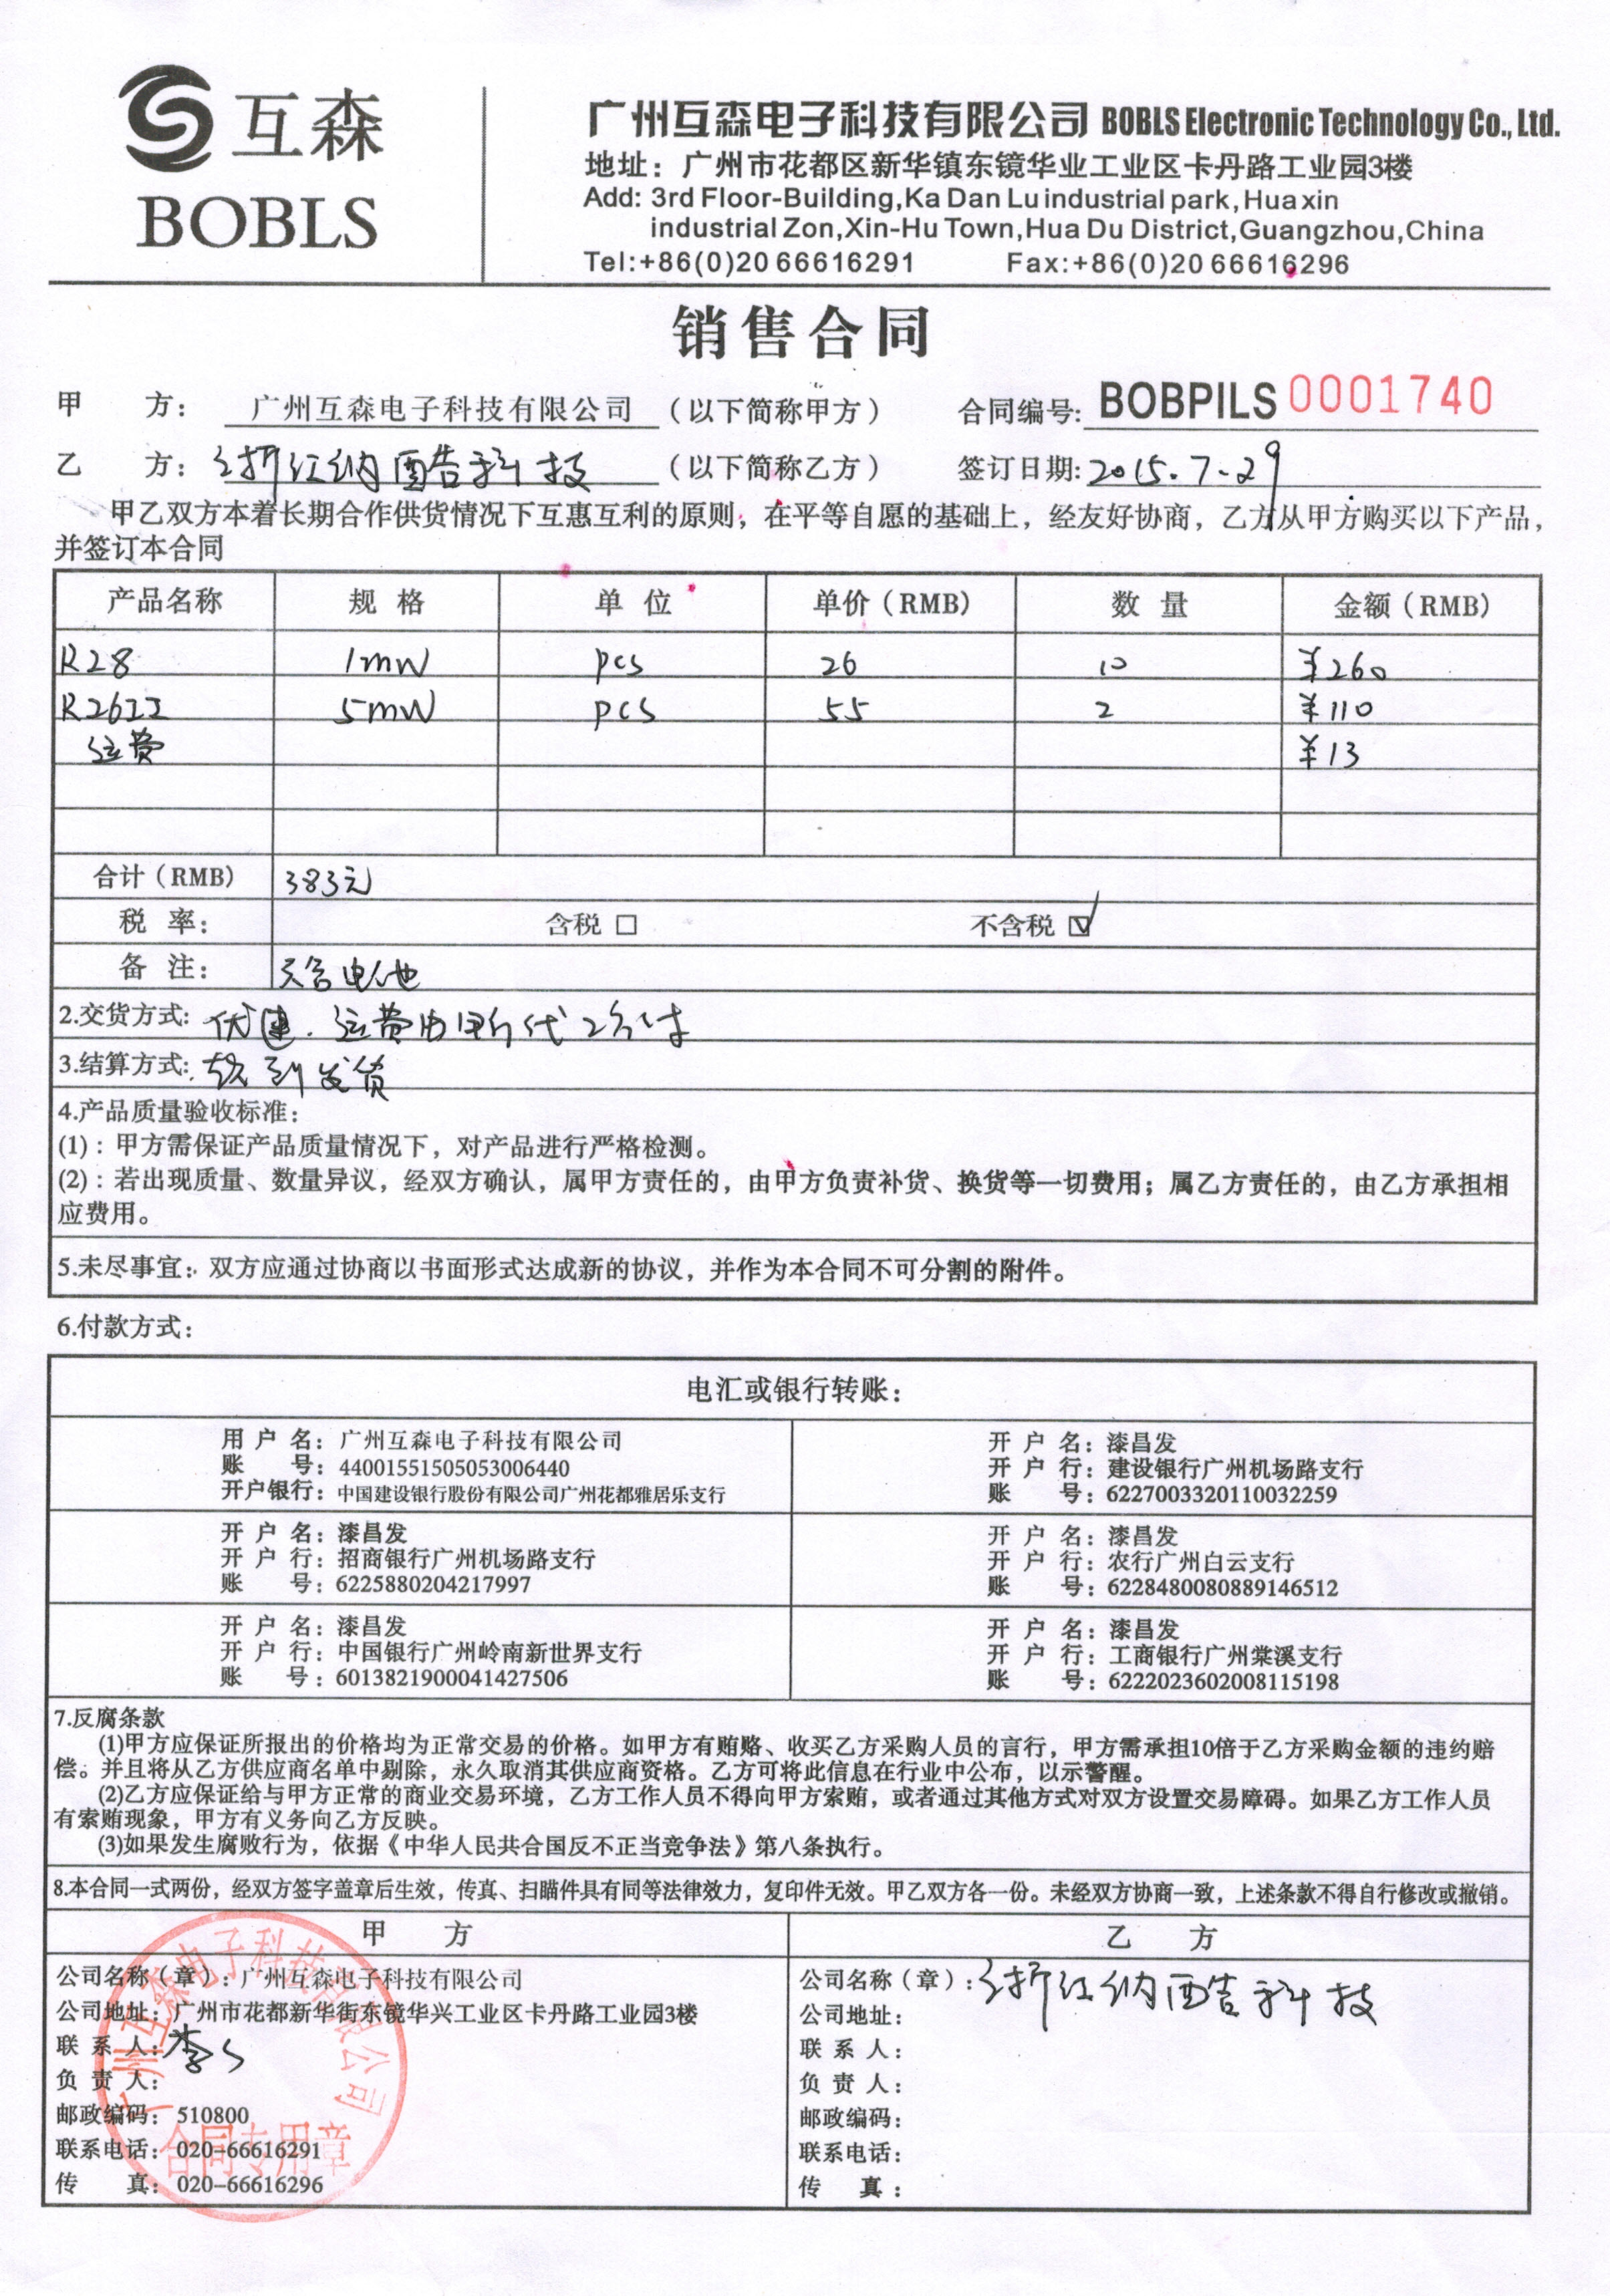 互森
BOBLS
广州互森电子科技有限公司 BOBLS Electronic Technology Co., Ltd.
地址：广州市花都区新华镇东镜华业工业区卡丹路工业园3楼
Add: 3rd Floor-Building,Ka Dan Lu industrial park,Huaxin
industrial Zon,Xin-Hu Town,Hua Du District,Guangzhou,China
Tel:+86(0)20 66616291 Fax:+86(0)20 66616296
销售合同
甲 方： 广州互森电子科技有限公司 （以下简称甲方） 合同编号: BOBPILS 0001740
乙 方： 浙江纳酷科技 （以下简称乙方） 签订日期: 2015.7-29
甲乙双方本着长期合作供货情况下互惠互利的原则；在平等自愿的基础上，经友好协商，乙方从甲方购买以下产品，
并签订本合同
产品名称 规 格 单 位 单价（RMB） 数 量 金额（RMB）
R28 1mW pcs 26 10 ¥260
R26II 5mW pcs 55 2 ¥110
运费 ¥13
合计（RMB） 383元
税 率： 含税 □ 不含税 ☑
备 注： 电池
2.交货方式: 优速. 运费由甲方代付
3.结算方式: 款到发货
4.产品质量验收标准：
(1)：甲方需保证产品质量情况下，对产品进行严格检测。
(2)：若出现质量、数量异议，经双方确认，属甲方责任的，由甲方负责补货、换货等一切费用；属乙方责任的，由乙方承担相
应费用。
5.未尽事宜：双方应通过协商以书面形式达成新的协议，并作为本合同不可分割的附件。
6.付款方式：
电汇或银行转账：
用 户 名：广州互森电子科技有限公司
账 号：44001551505053006440
开户银行：中国建设银行股份有限公司广州花都雅居乐支行
开 户 名：漆昌发
开 户 行：建设银行广州机场路支行
账 号：6227003320110032259
开 户 名：漆昌发
开 户 行：招商银行广州机场路支行
账 号：6225880204217997
开 户 名：漆昌发
开 户 行：农行广州白云支行
账 号：6228480080889146512
开 户 名：漆昌发
开 户 行：中国银行广州岭南新世界支行
账 号：6013821900041427506
开 户 名：漆昌发
开 户 行：工商银行广州棠溪支行
账 号：6222023602008115198
7.反腐条款
(1)甲方应保证所报出的价格均为正常交易的价格。如甲方有贿赂、收买乙方采购人员的言行，甲方需承担10倍于乙方采购金额的违约赔
偿。并且将从乙方供应商名单中剔除，永久取消其供应商资格。乙方可将此信息在行业中公布，以示警醒。
(2)乙方应保证给与甲方正常的商业交易环境，乙方工作人员不得向甲方索贿，或者通过其他方式对双方设置交易障碍。如果乙方工作人员
有索贿现象，甲方有义务向乙方反映。
(3)如果发生腐败行为，依据《中华人民共合国反不正当竞争法》第八条执行。
8.本合同一式两份，经双方签字盖章后生效，传真、扫瞄件具有同等法律效力，复印件无效。甲乙双方各一份。未经双方协商一致，上述条款不得自行修改或撤销。
甲 方
公司名称（章）：广州互森电子科技有限公司
公司地址：广州市花都新华街东镜华兴工业区卡丹路工业园3楼
联 系 人：李
负 责 人：
邮政编码：510800
联系电话：020-66616291
传 真：020-66616296
广州互森电子科技有限公司
合同专用章
乙 方
公司名称（章）：浙江纳酷科技
公司地址：
联 系 人：
负 责 人：
邮政编码：
联系电话：
传 真：